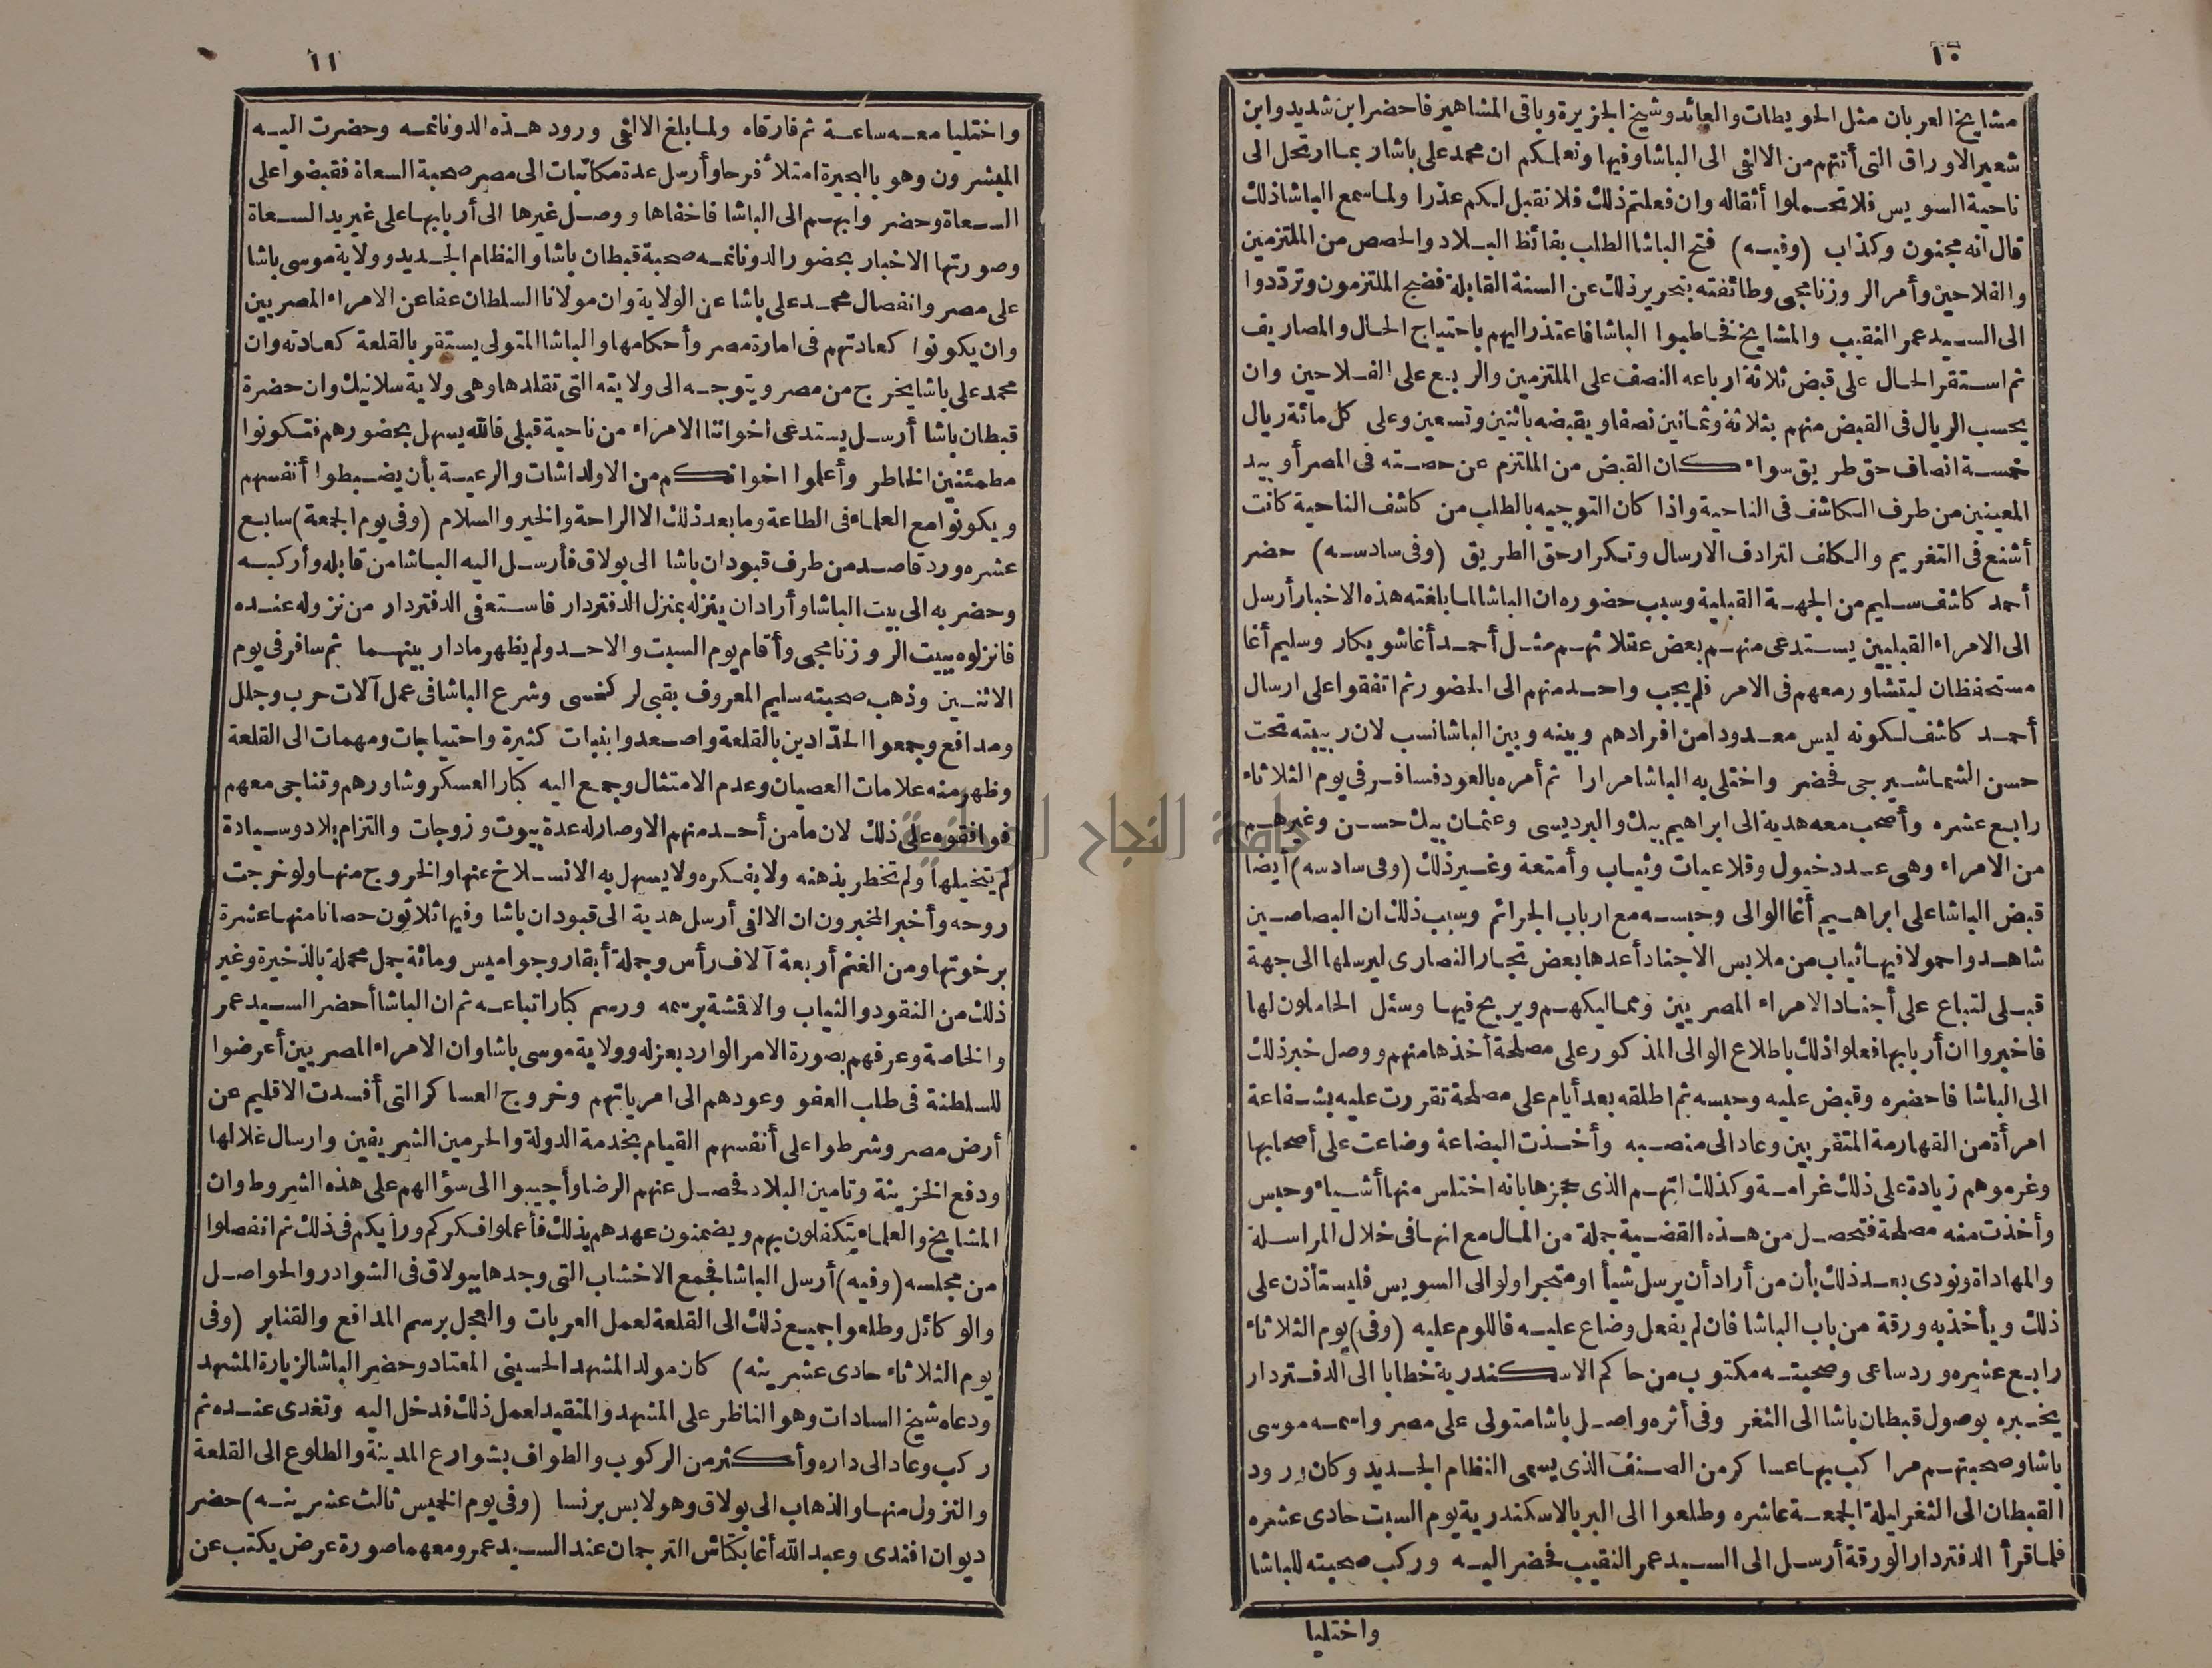 ١٠
مشايخ العربان مثل الحويطات والعائد وشيخ الجزيرة وباقي المشاهير فاحضر ابن شديد وابن
شعير الاوراق التي أتتهم من الالفي الى الباشا وفيها ونعلمكم ان محمد علي باشا ربما ارتحل الى
ناحية السويس فلا تحملوا أثقاله وان فعلتم ذلك فلا نقبل لكم عذرا ولما سمع الباشا ذلك
قال انه مجنون وكذاب (وفيه) فتح الباشا الطلب بفائظ البلاد والحصص من الملتزمين
والفلاحين وأمر الروزنامجي وطائفته بتحرير ذلك عن السنة القابلة فضج الملتزمون وترددوا
الى السيد عمر النقيب والمشايخ فخاطبوا الباشا فاعتذر اليهم باحتياج الحال والمصاريف
ثم استقر الحال على قبض ثلاثة ارباعه النصف على الملتزمين والربع على الفلاحين وان
يحسب الريال في القبض منهم بثلاثة وثمانين نصفا ويقبضه باثنين وتسعين وعلى كل مائة ريال
خمسة انصاف حق طريق سواء كان القبض من الملتزم عن حصته في المصر أو بيد
المعينين من طرف الكاشف في الناحية واذا كان التوجيه بالطلب من كاشف الناحية كانت
أشنع في التغريم والكلف لترادف الارسال وتكرار حق الطريق (وفي سادسه) حضر
أحمد كاشف سليم من الجهة القبلية وسبب حضوره ان الباشا لما بلغته هذه الاخبار أرسل
الى الامراء القبليين يستدعي منهم بعض عقلائهم مثل أحمد أغا شويكار وسليم أغا
مستحفظان ليتشاور معهم في الامر فلم يجب واحد منهم الى الحضور ثم اتفقوا على ارسال
أحمد كاشف لكونه ليس معدودا من افرادهم وبينه وبين الباشا نسب لان ربيبته تحت
حسن الشماشيرجي فحضر واختلى به الباشا مرارا ثم أمره بالعود فسافر في يوم الثلاثاء
رابع عشره وأصحب معه هدية الى ابراهيم بيك والبرديسي وعثمان بيك حسن وغيرهم
من الامراء وهي عدد خيول وقلاعيات وثياب وأمتعة وغير ذلك (وفي سادسه) أيضا
قبض الباشا على ابراهيم أغا الوالي وحبسه مع ارباب الجرائم وسبب ذلك ان البصاصين
شاهدوا حمولا فيها ثياب من ملابس الاجناد أعدها بعض تجار النصارى ليرسلها الى جهة
قبلي لتباع على أجناد الامراء المصريين ومماليكهم ويربح فيها وسئل الحاملون لها
فاخبروا ان أربابها فعلوا ذلك باطلاع الوالي المذكور على مصلحة أخذها منهم ووصل خبر ذلك
الى الباشا فاحضره وقبض عليه وحبسه ثم اطلقه بعد أيام على مصلحة تقررت عليه بشفاعة
امرأة من القهارمة المتقربين وعاد الى منصبه وأخذت البضاعة وضاعت على أصحابها
وغرموهم زيادة على ذلك غرامة وكذلك اتهم الذي حجزها بانه اختلس منها أشياء وحبس
وأخذت منه مصلحة فتحصل من هذه القضية جملة من المال مع انها في خلال المراسلة
والمهاداة ونودي بعد ذلك بأن من أراد أن يرسل شيأ او متجرا ولو الى السويس فليستأذن على
ذلك ويأخذ به ورقة من باب الباشا فان لم يفعل وضاع عليه فاللوم عليه (وفي) يوم الثلاثاء
رابع عشره ورد ساعي وصحبته مكتوب من حاكم الاسكندرية خطابا الى الدفتردار
يخبره بوصول قبطان باشا الى الثغر وفي أثره واصل باشا متولي على مصر واسمه موسى
باشا وصحبتهم مراكب بها عساكر من الصنف الذي يسمى النظام الجديد وكان ورود
القبطان الى الثغر ليلة الجمعة عاشره وطلعوا الى البر بالاسكندرية يوم السبت حادي عشره
فلما قرأ الدفتردار الورقة أرسل الى السيد عمر النقيب فحضر اليه وركب صحبته للباشا
واختليا
١١
واختليا معه ساعة ثم فارقاه ولما بلغ الالفي ورود هذه الدونانمه وحضرت اليه
المبشرون وهو بالبحيرة امتلأ فرحا وأرسل عدة مكاتبات الى مصر صحبة السعاة فقبضوا على
السعاة وحضر وا بهم الى الباشا فاخفاها ووصل غيرها الى أربابها على غير يد السعاة
وصورتها الاخبار بحضور الدونانمه صحبة قبطان باشا والنظام الجديد وولاية موسى باشا
على مصر وانفصال محمد علي باشا عن الولاية وان مولانا السلطان عفا عن الامراء المصريين
وان يكونوا كعادتهم في امارة مصر وأحكامها والباشا المتولي يستقر بالقلعة كعادته وان
محمد علي باشا يخرج من مصر ويتوجه الى ولايته التي تقلدها وهي ولاية سلانيك وان حضرة
قبطان باشا أرسل يستدعي اخواننا الامراء من ناحية قبلي فالله يسهل بحضورهم فتكونوا
مطمئنين الخاطر وأعلموا اخوانكم من الاولداشات والرعية بأن يضبطوا أنفسهم
ويكونوا مع العلماء في الطاعة وما بعد ذلك الا الراحة والخير والسلام (وفي يوم الجمعة) سابع
عشره ورد قاصد من طرف قبودان باشا الى بولاق فأرسل اليه الباشا من قابله وأركبه
وحضر به الى بيت الباشا وأراد ان ينزله بمنزل الدفتردار فاستعفى الدفتردار من نزوله عنده
فانزلوه ببيت الروزنامجي وأقام يوم السبت والاحد ولم يظهر ما دار بينهما ثم سافر في يوم
الاثنين وذهب صحبته سليم المعروف بقبي لر كخسى وشرع الباشا في عمل آلات حرب وجلل
ومدافع وجمعوا الحدادين بالقلعة واصعدوا بنبات كثيرة واحتياجات ومهمات الى القلعة
وظهر منه علامات العصيان وعدم الامتثال وجمع اليه كبار العسكر وشاورهم وتناجى معهم
فوافقوه على ذلك لان ما من أحد منهم الا وصار له عدة بيوت وزوجات والتزام بلاد وسيادة
لم يتخيلها ولم تخطر بذهنه ولا بفكره ولا يسهل به الانسلاخ عنها والخروج منها ولو خرجت
روحه وأخبر المخبرون ان الالفي أرسل هدية الى قبودان باشا وفيها ثلاثون حصانا منها عشرة
برخوتها ومن الغنم أربعة آلاف رأس وجملة أبقار وجواميس ومائة جمل محملة بالذخيرة وغير
ذلك من النقود والثياب والاقمشة برسمه ورسم كبار اتباعه ثم ان الباشا أحضر السيد عمر
والخاصة وعرفهم بصورة الامر الوارد بعزله وولاية موسى باشا وان الامراء المصريين أعرضوا
للسلطنة في طلب العفو وعودهم الى امرياتهم وخروج العساكر التي أفسدت الاقليم عن
أرض مصر وشرطوا على أنفسهم القيام بخدمة الدولة والحرمين الشريفين وارسال غلالها
ودفع الخزينة وتامين البلاد فحصل عنهم الرضا وأجيبوا الى سؤالهم على هذه الشروط وان
المشايخ والعلماء يتكفلون بهم ويضمنون عهدهم بذلك فأعملوا فكركم ورأيكم في ذلك ثم انفصلوا
من مجلسه (وفيه) أرسل الباشا فجمع الاخشاب التي وجدها ببولاق في الشوادر والحواصل
والوكائل وطلعوا جميع ذلك الى القلعة لعمل العربات والعجل برسم المدافع والقنابر (وفي
يوم الثلاثاء حادي عشرينه) كان مولد المشهد الحسيني المعتاد وحضر الباشا لزيارة المشهد
ودعاه شيخ السادات وهو الناظر على المشهد والمتقيد لعمل ذلك فدخل اليه وتغدى عنده ثم
ركب وعاد الى داره وأكثر من الركوب والطواف بشوارع المدينة والطلوع الى القلعة
والنزول منها والذهاب الى بولاق وهو لابس برنسا (وفي يوم الخميس ثالث عشرينه) حضر
ديوان افندي وعبد الله أغا بكتاش الترجمان عند السيد عمر ومعهما صورة عرض يكتب عن
جامعة النجاح